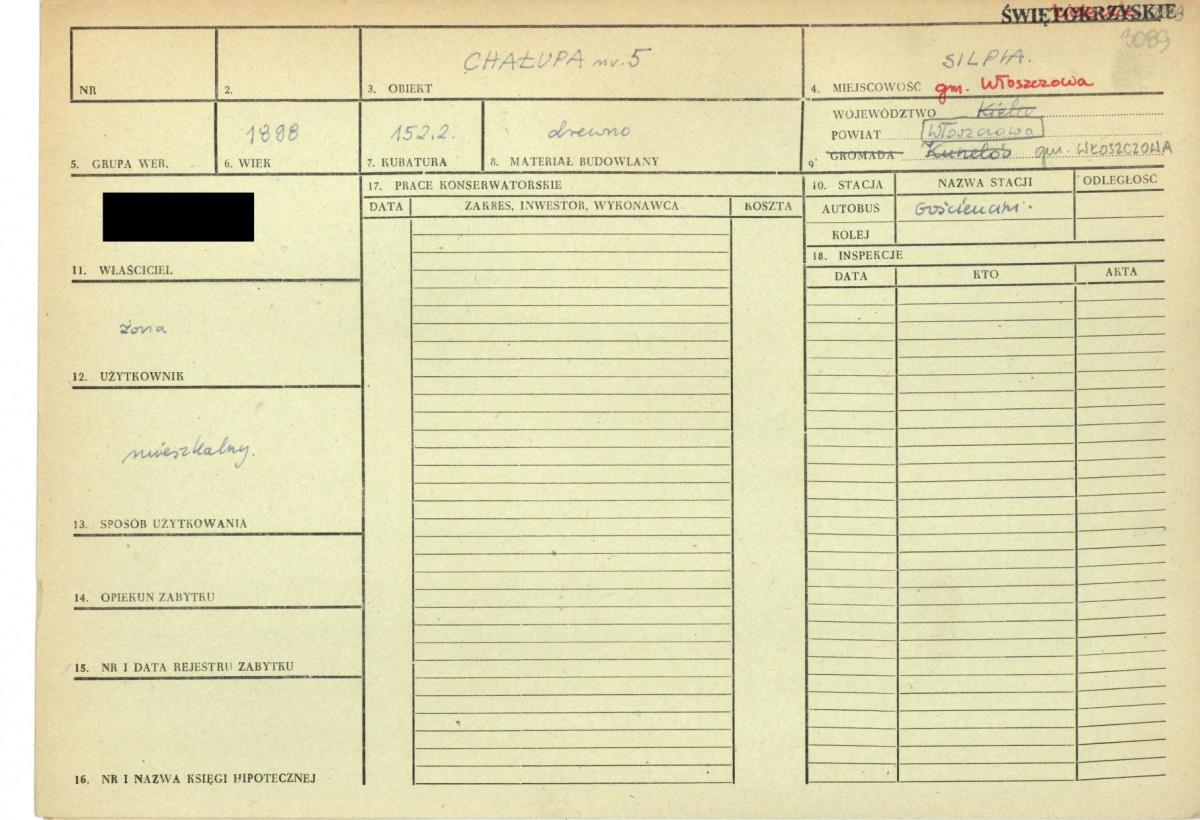 ŚWIĘTOKRZYSKIE
3089
NR
2.
CHAŁUPA nr. 5
3. OBIEKT
SILPIA.
4. MIEJSCOWOŚĆ gm. Włoszczowa
5. GRUPA WER.
1898
6. WIEK
152.2.
7. KUBATURA
drewno
8. MATERIAŁ BUDOWLANY
WOJEWÓDZTWO Kielce
POWIAT Włoszczowa
9. GROMADA gm. WŁOSZCZOWA
11. WŁAŚCICIEL
żona
12. UŻYTKOWNIK
mieszkalny.
13. SPOSÓB UŻYTKOWANIA
14. OPIEKUN ZABYTKU
15. NR I DATA REJESTRU ZABYTKU
16. NR I NAZWA KSIĘGI HIPOTECZNEJ
17. PRACE KONSERWATORSKIE
DATA ZAKRES, INWESTOR, WYKONAWCA KOSZTA
10. STACJA NAZWA STACJI ODLEGŁOŚĆ
AUTOBUS
KOLEJ
18. INSPEKCJE
DATA KTO AKTA